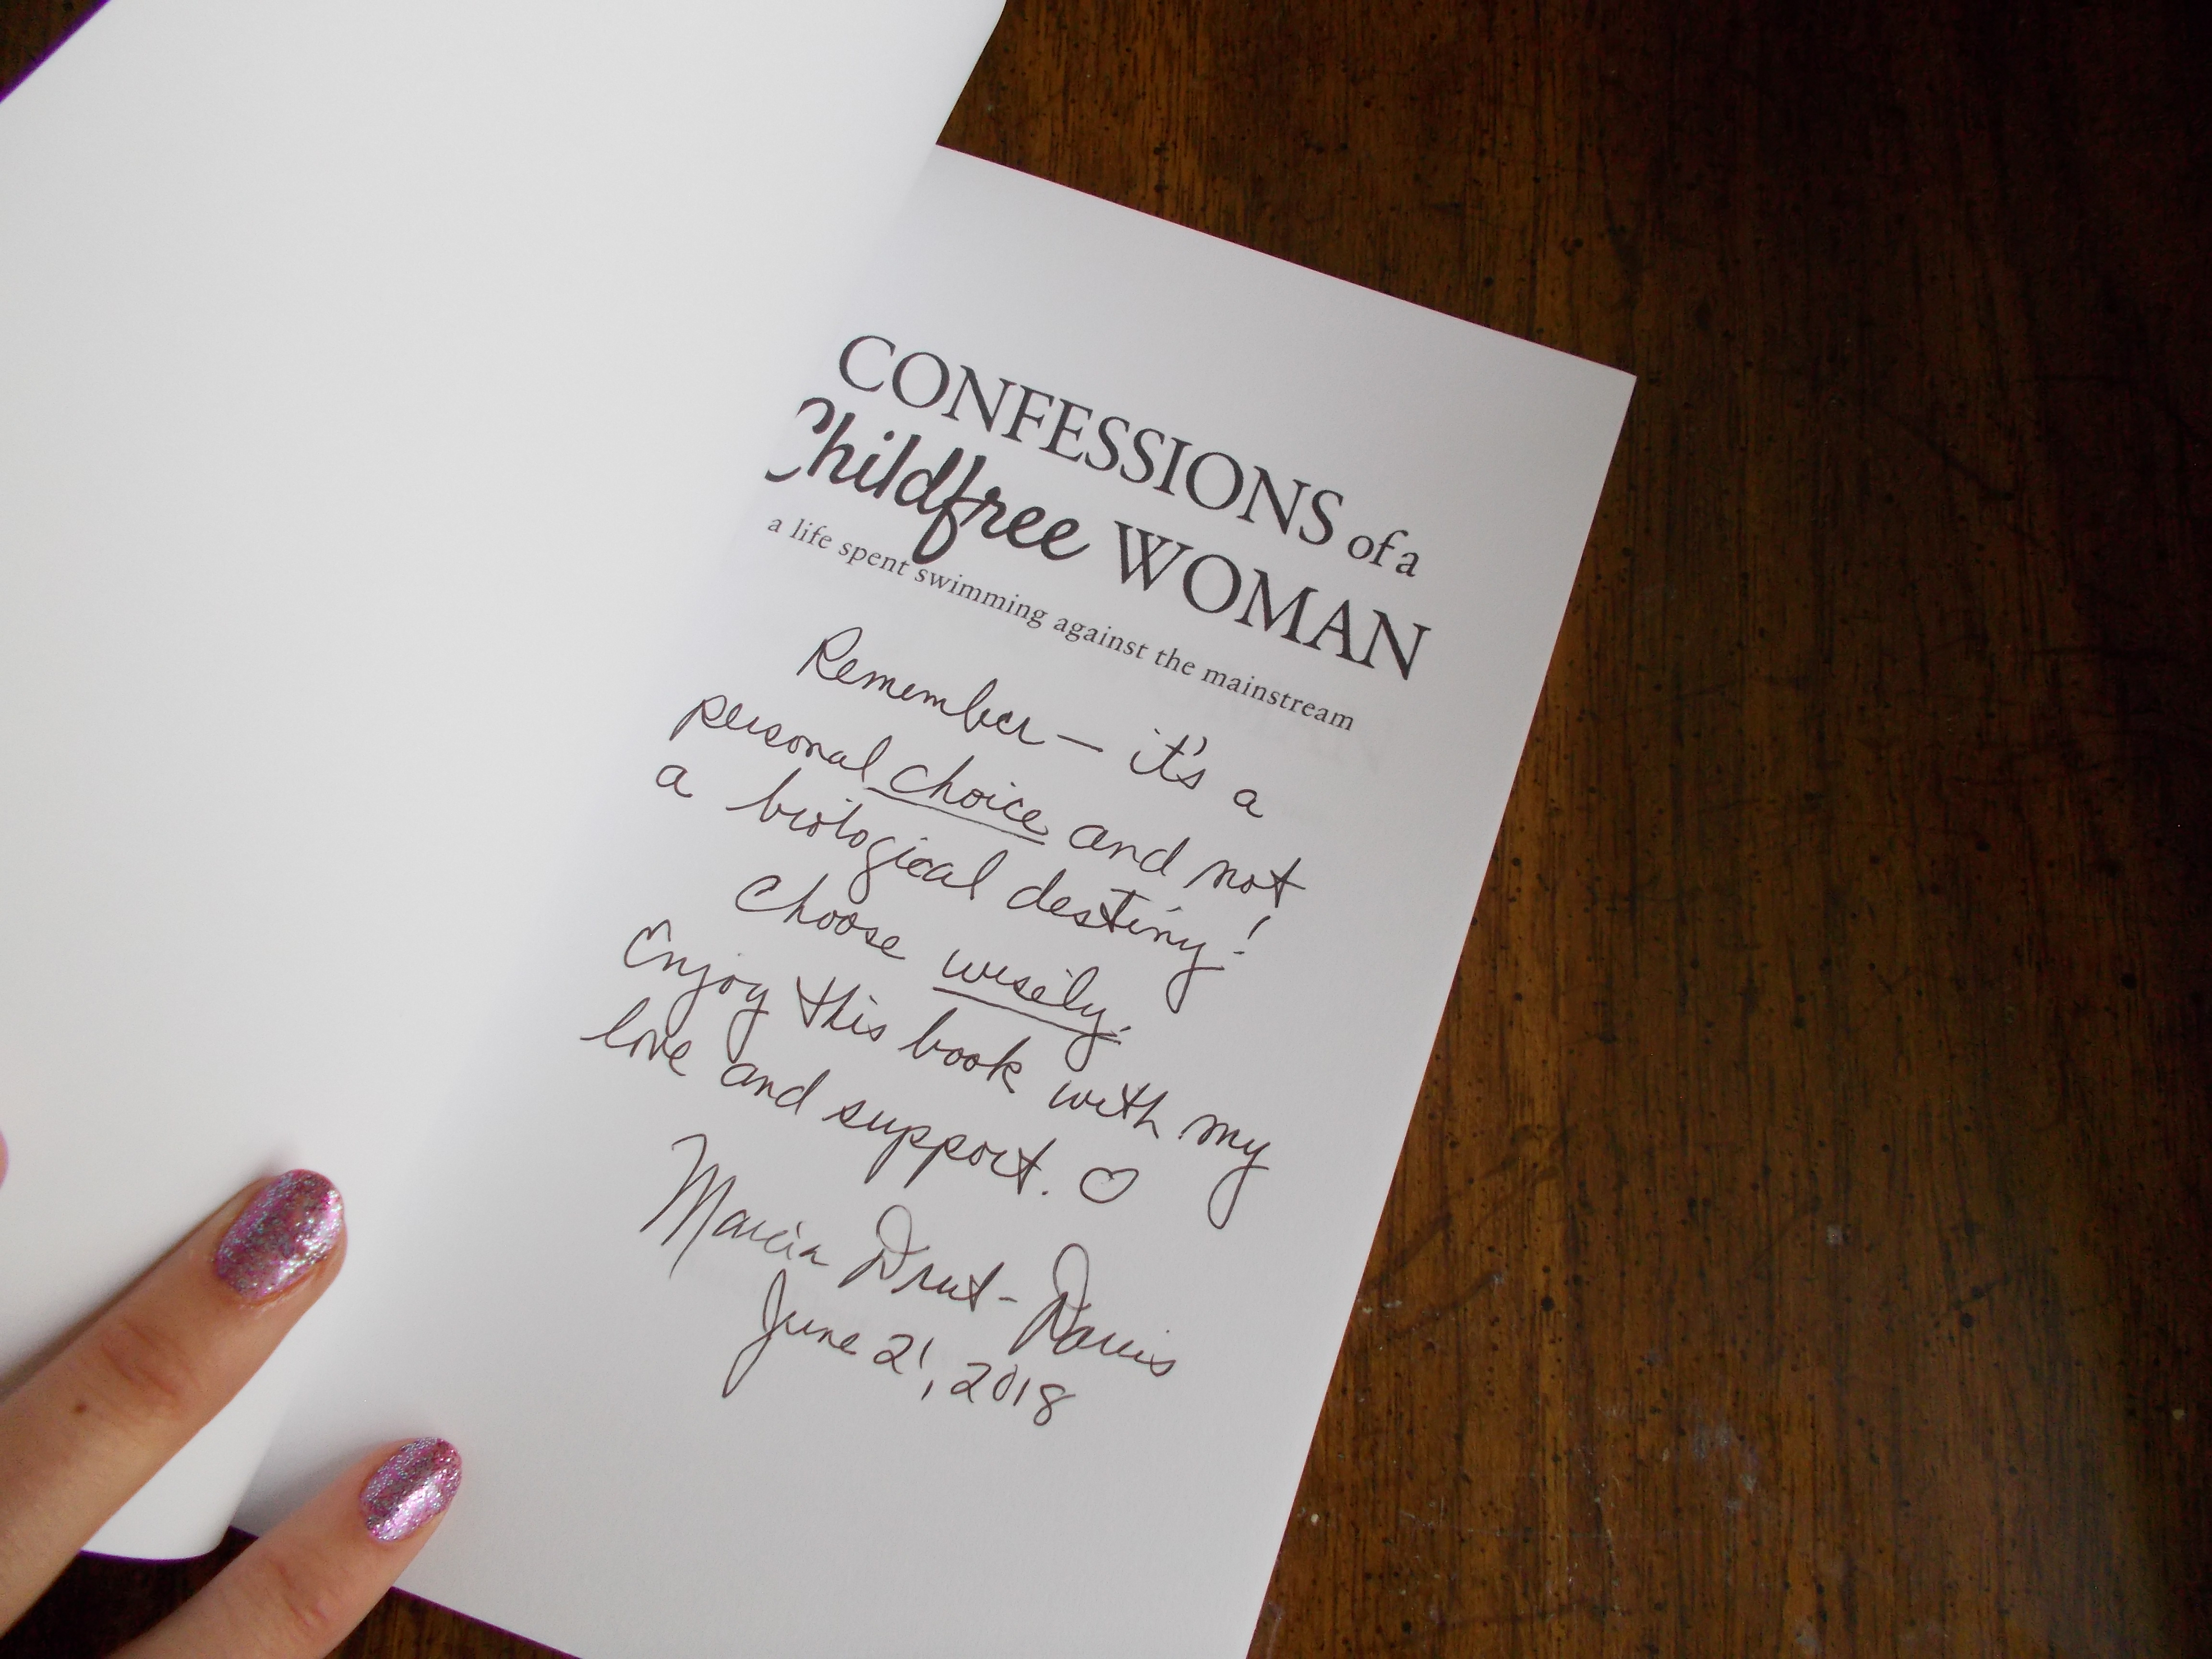 CONFESSIONS of a
Childfree WOMAN
a life spent swimming against the mainstream
Remember – it's a
personal choice and not
a biological destiny!
Choose wisely.
Enjoy this book with my
love and support. ♡
Marcia Drut-Davis
June 21, 2018